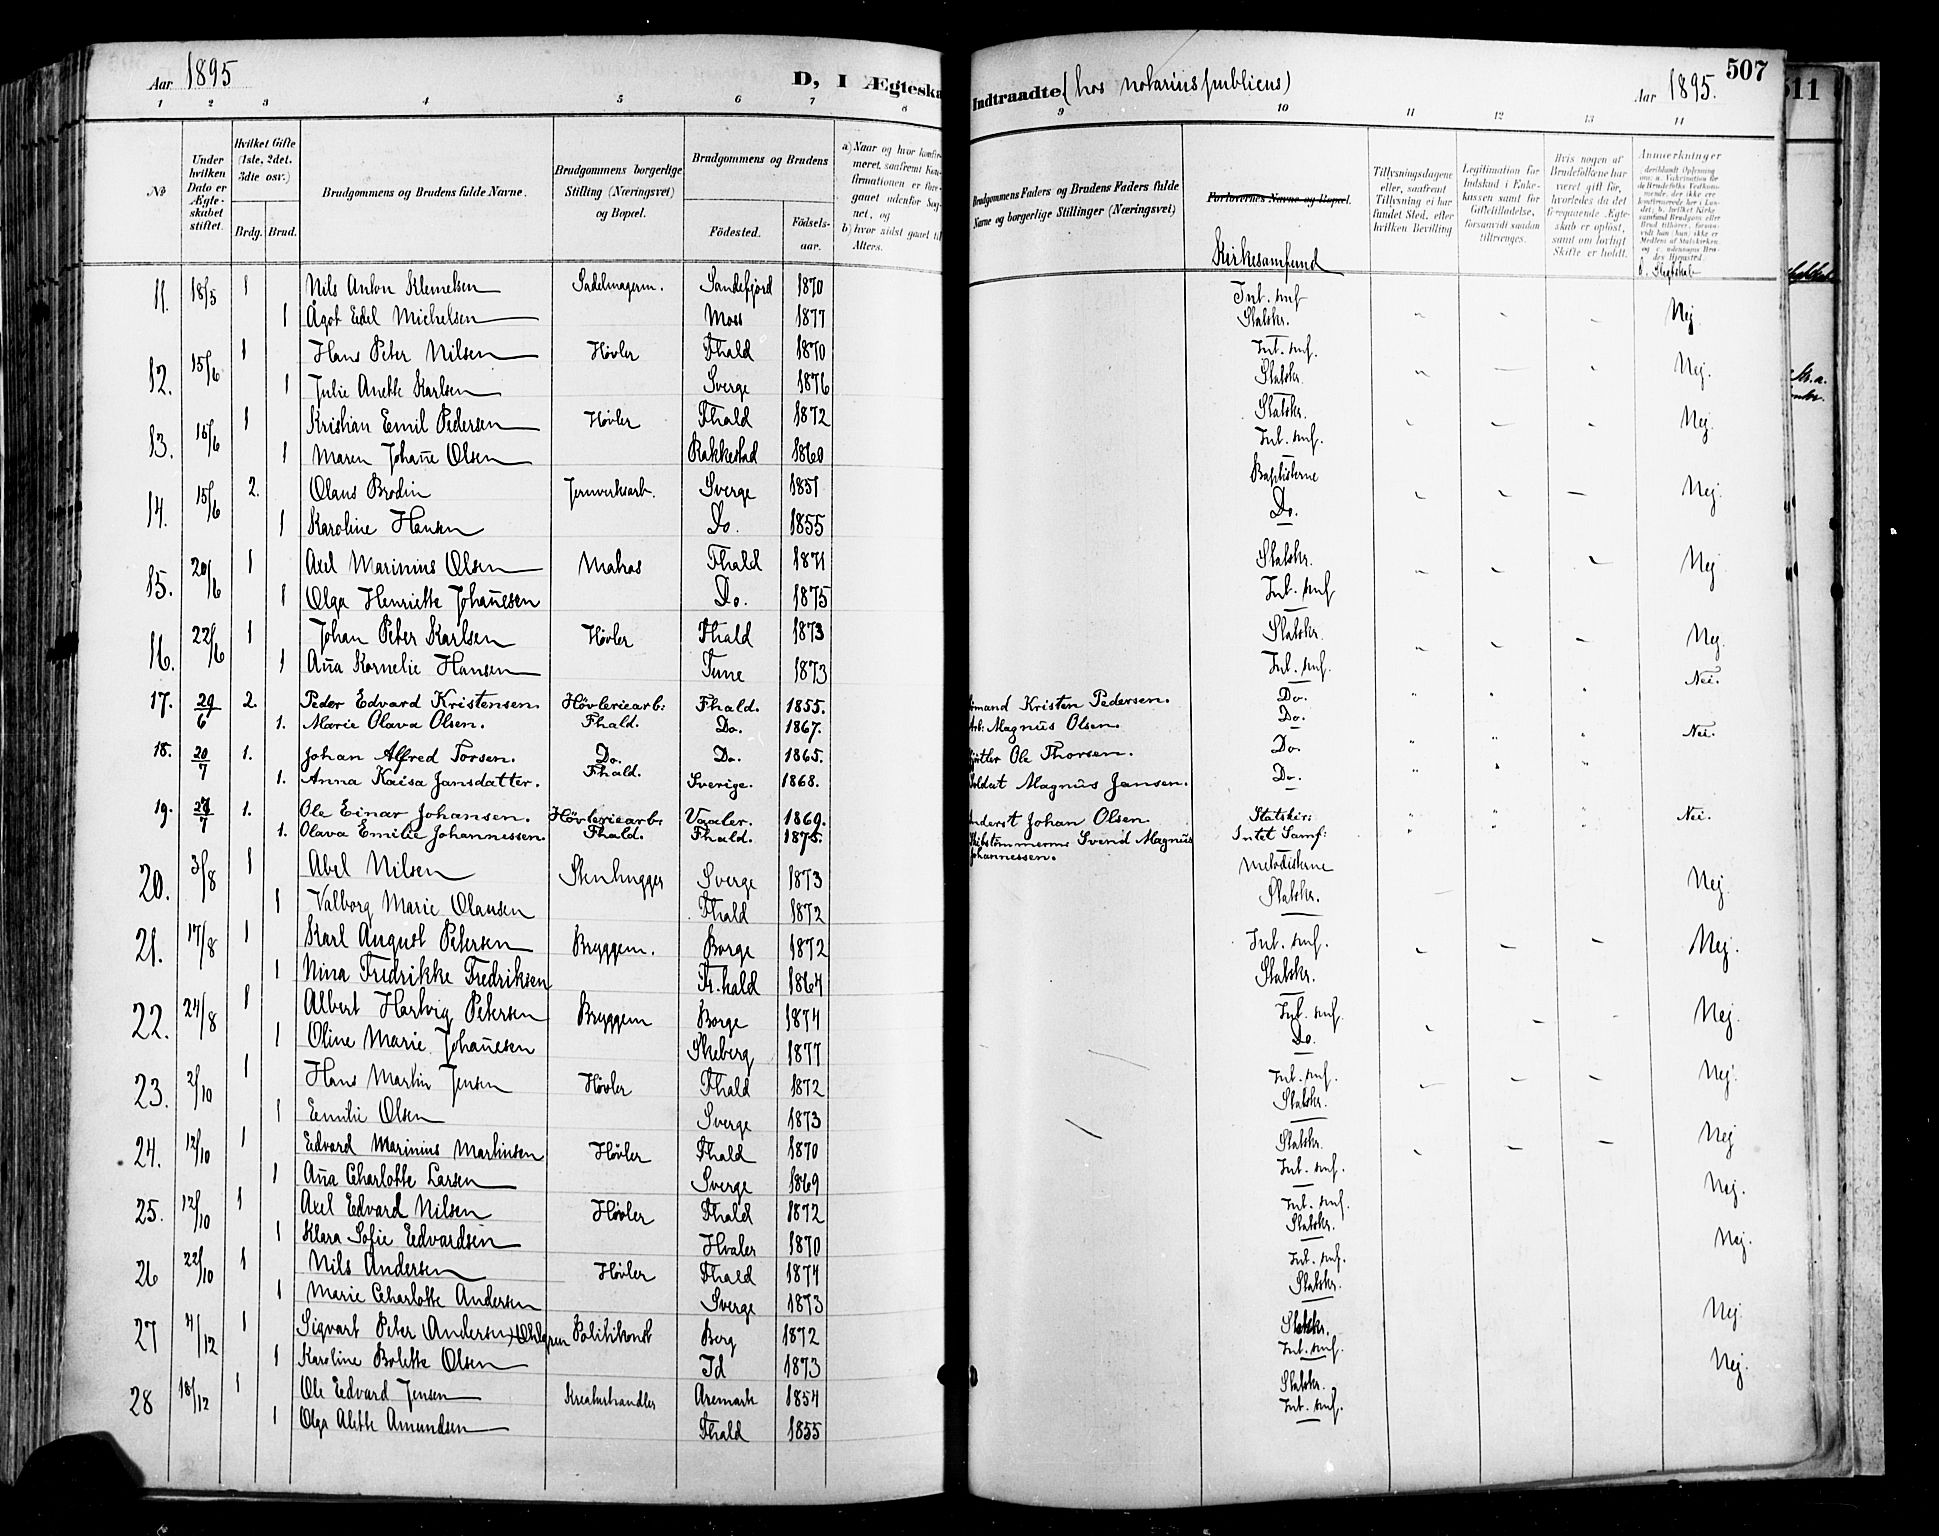 Aar 1895
D, I Ægteska
1 2 3 4 5 6 7 8
No
Under hvilken Dato er Ægteskabet stiftet.
Hvilket Gifte (1ste, 2det, 3dte osv.)
Brdg. Brud.
Brudgommens og Brudens fulde Navne.
Brudgommens borgerlige Stilling (Næringsvei) og Bopæl.
Brudgommens og Brudens
Fødested. Fødselsaar.
a) Naar og hvor konfirmeret, saafremt Konfirmationen er foregaaet udenfor Sognet, og
b) hvor sidst gaaet til Alters.
11. 18/5 1 Nils Anton Klemetsen Sadelmagerm. Sandefjord 1870
1 Ågot Edel Michelsen Moss 1877
12. 15/6 1 Hans Peter Nilsen Høvler Fhald 1870
1 Julie Anette Karlsen Sverge 1876
13. 15/6 1 Kristian Emil Pedersen Høvler Fhald 1872
1 Maren Johan̄e Olsen Rakkestad 1860
14. 15/6 2. Olaus Brodin Jernverksarb. Sverge 1851
1 Karoline Hansen Do. 1855
15. 20/6 1 Axel Marinius Olsen Matros Fhald 1871
1 Olga Henriette Johan̄esen Do. 1875
16. 22/6 1 Johan Peter Karlsen Høvler Fhald 1873
1 An̄a Kornelie Hansen Tune 1873
17. 29/6 2. Peder Edvard Kristensen. Høvleriearb: Fhald. 1855.
1. Marie Olava Olsen. Fhald. Do. 1867.
18. 20/7 1. Johan Alfred Torsen. Do. Do. 1865.
1. Anna Kaisa Jansdatter. Fhald. Sverige. 1868.
19. 27/7 1. Ole Einar Johansen. Høvleriearb: Vaaler. 1869.
1. Olava Emilie Johannessen. Fhald. Fhald. 1875.
20. 3/8 1 Abel Nilsen Stenhugger Sverge 1873
1 Valborg Marie Olausen Fhald 1872
21. 17/8 1 Karl August Petersen Bryggem. Borge 1872
1 Nina Fredrikke Fredriksen Fr.hald 1864
22. 24/8 1 Albert Hartvig Petersen Bryggem Borge 1874
1 Oline Marie Johan̄esen Skeberg 1877
23. 2/10 1 Hans Martin Jensen Høvler Fhald 1872
1 Emilie Olsen Sverge 1873
24. 12/10 1 Edvard Marinius Martinsen Høvler Fhald 1870
1 An̄a Charlotte Larsen Sverge 1869
25. 12/10 1 Axel Edvard Nilsen Høvler Fhald 1872
1 Klara Sofie Edvardsen Hvaler 1870
26 22/10 1 Nils Andersen Høvler Fhald 1874
1 Marie Charlotte Andersen Sverge 1873
27 4/12 1 Sigvart Peter (Andersen) Ohlgren Politikonst Berg 1872
1 Karoline Bolette Olsen Id 1873
28 18/12 1 Ole Edvard Jensen Kreaturhandler Aremark 1854
1 Olga Alette Amundsen Fhald 1855
Indtraadte (hos notarius publicus)
Aar 1895.
507
9 10 11 12 13 14
Brudgommens Faders og Brudens Faders fulde Navne og borgerlige Stillinger (Næringsvei)
Forlovernes Navne og Bopæl.
Kirkesamfund
Tillysningsdagene eller, saafremt Tillysning ei har fundet Sted, efter hvilken Bevilling
Legitimation for Indskud i Enkekassen samt for Giftetilladelse, forsaavidt saadan tiltrænges.
Hvis nogen af Brudefolkene har været gift før, hvorledes da det foregaaende Ægteskab er opløst, samt om lovligt Skifte er holdt.
Anmerkninger
d. Slegtskab
Int. smf Nej
Statskr.
Int. smf. Nej.
Statskr.
Statskr. Nej.
Int. smf.
Baptisterne Nej.
Do.
Statskr. Nej
Int. smf
Statskr. Nej.
Int. smf.
Formand Kristen Pedersen. Do. Nei.
Arb: Magnus Olsen. Do.
Ole Thorsen. Do. Nei.
Soldat Magnus Jansen. Do.
Inderst Johan Olsen. Statskir: Nei.
Skibstømmerm: Svend Magnus Johannessen. Intet Samf:
Metodisterne Nej
Statskr.
Int. smf. Nej.
Statskr.
Int. smf. Nej.
Do.
Int. smf. Nej.
Statskr.
Statskr. Nej
Int. smf.
Int. smf. Nej.
Statskr.
Int. smf. Nej.
Statskr.
Statskr. Nej
Int. smf.
Statskr. Nej.
Int. smf.
11